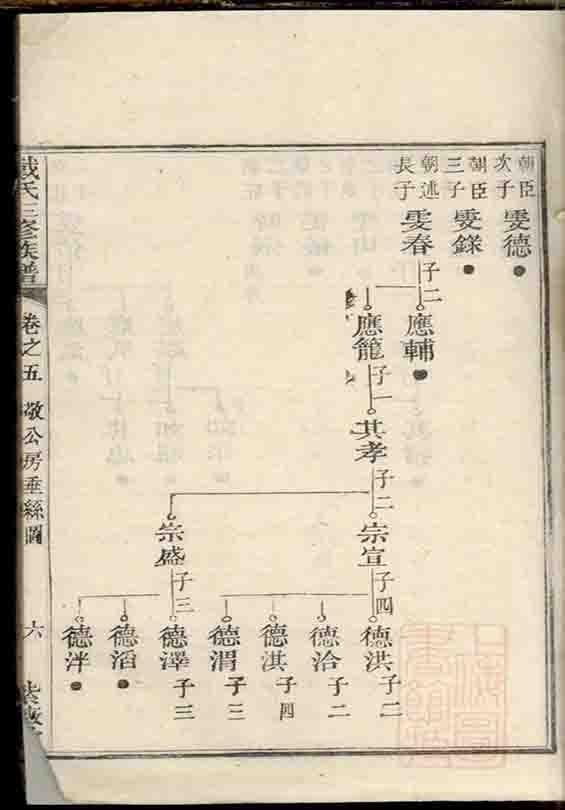 朝臣次子 雯德
朝臣三子 雯錄
朝述長子 雯春 子二
應輔
應龍 子一
其孝 子二
宗宣 子四
宗盛 子三
德洪 子二
德洽 子二
德淇 子四
德渭 子三
德澤 子三
德滔
德泮
戴氏三修族譜
卷之五 敬公房垂絲圖
六